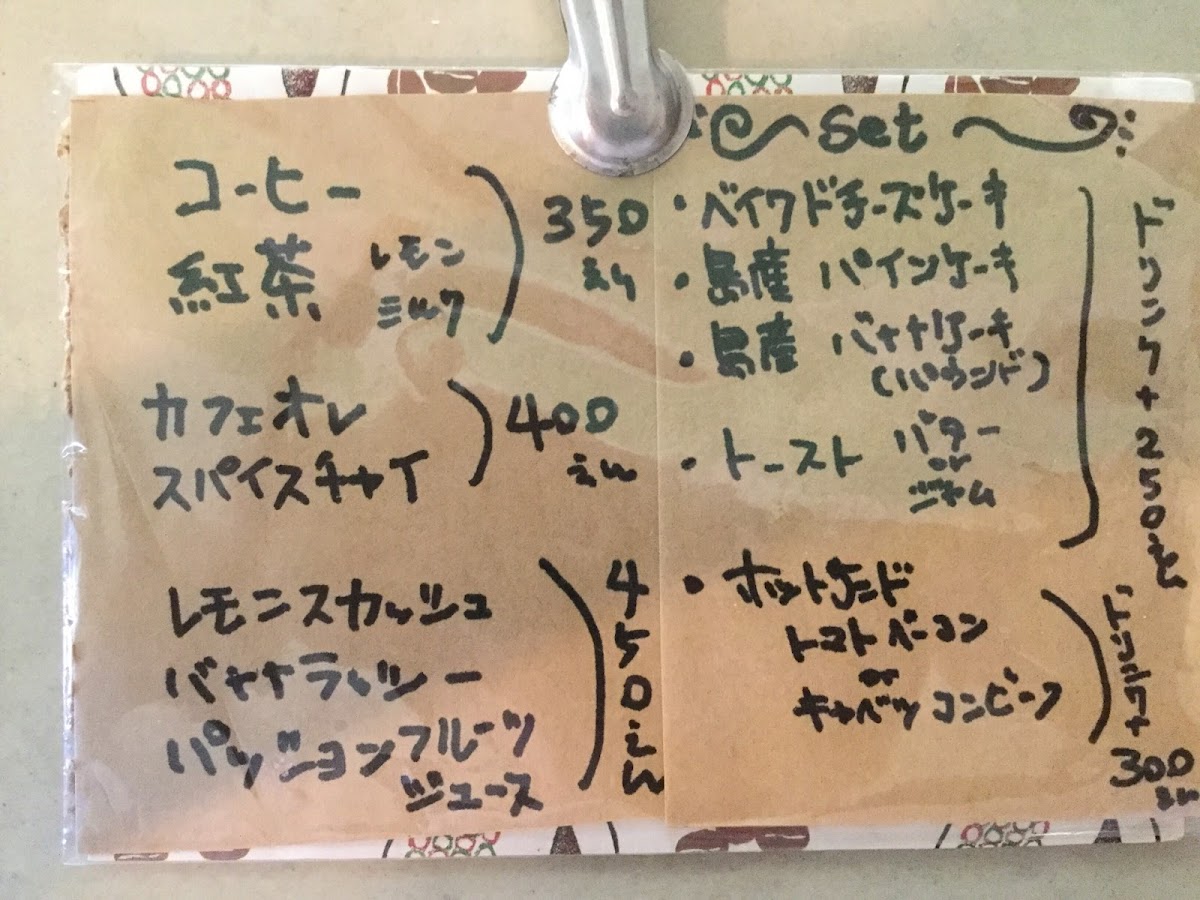 コーヒー
紅茶 レモン
ミルク
350
えん
カフェオレ
スパイスチャイ
400
えん
レモンスカッシュ
バナナラッシー
パッションフルーツ
ジュース
450えん
Set
・ベイクドチーズケーキ
・島産 パインケーキ
・島産 バナナケーキ
(パウンド)
・トースト バター
or
ジャム
ドリンク+250えん
・ホットサンド
トマトベーコン
or
キャベツコンビーフ
ドリンク+
300
えん